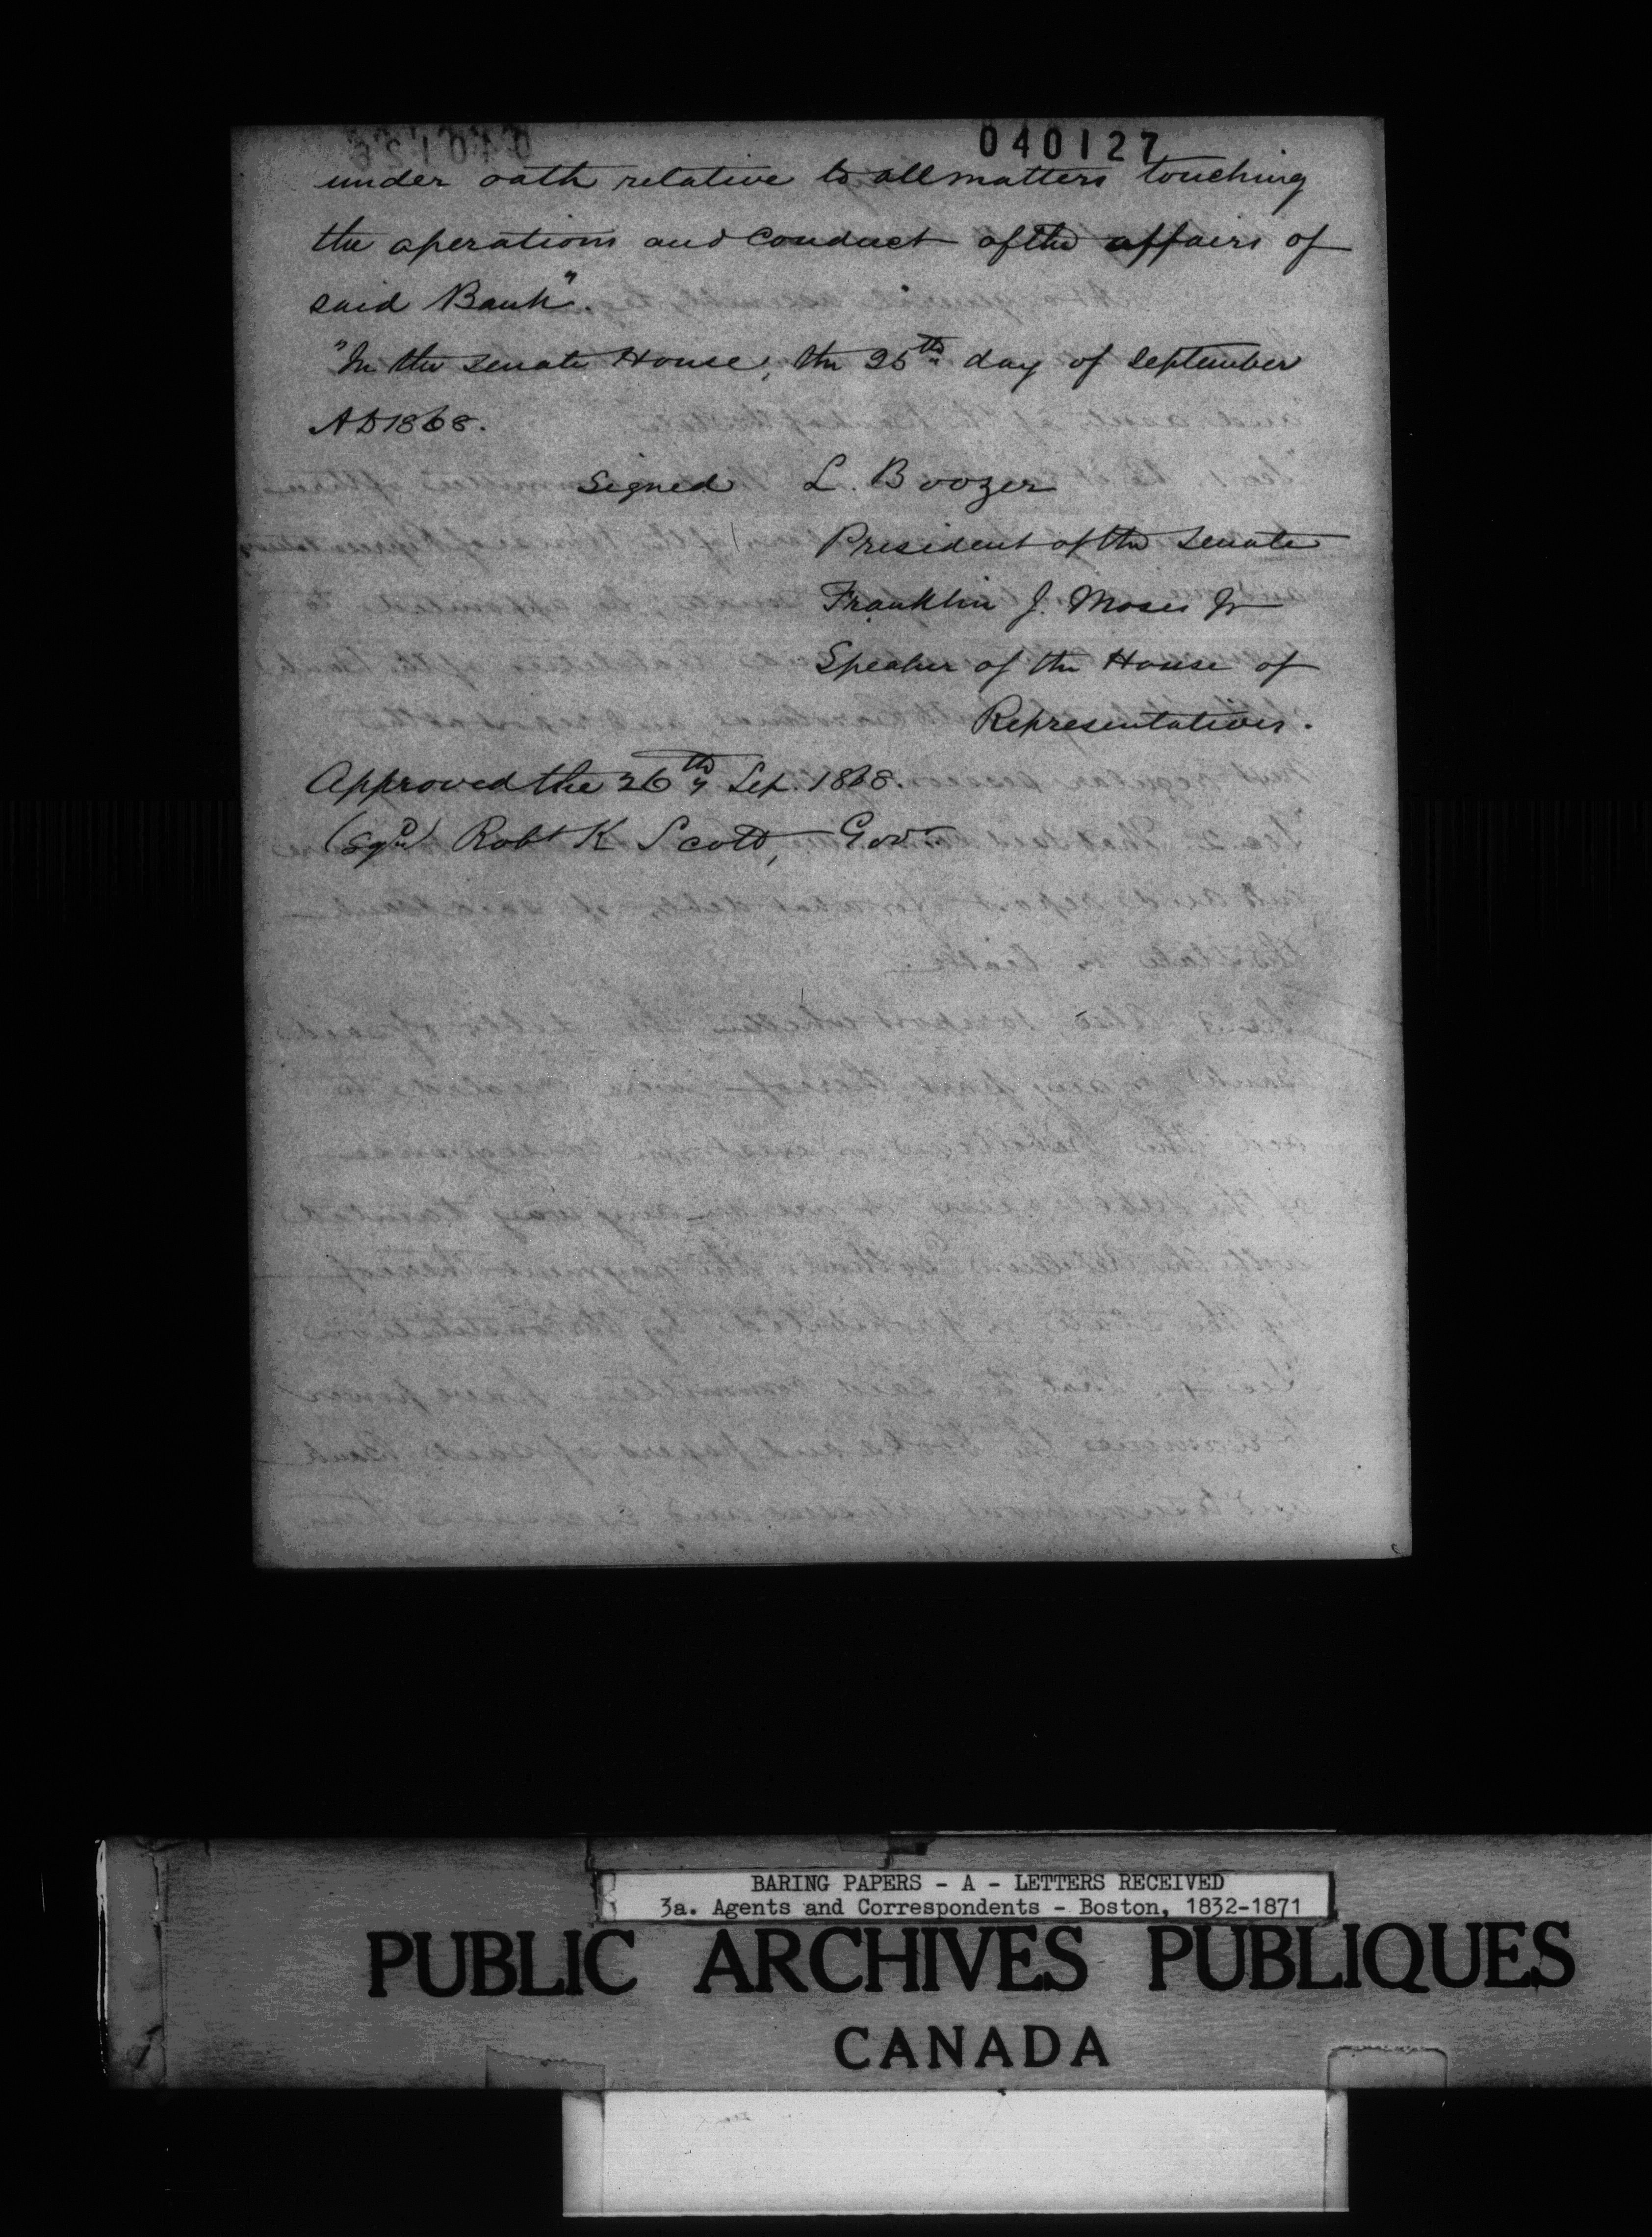 040127
under oath relative to all matters touching
the operations and conduct of the affairs of
said Bank".
"In the Senate House, the 25th day of September
AD 1868.
Signed L. Boozer
President of the Senate
Franklin J. Moses Jr
Speaker of the House of
Representatives.
Approved the 26th Sep. 1868.
(Sgd) Robt K Scott, Gov.
BARING PAPERS - A - LETTERS RECEIVED
3a. Agents and Correspondents - Boston, 1832-1871
PUBLIC ARCHIVES PUBLIQUES
CANADA